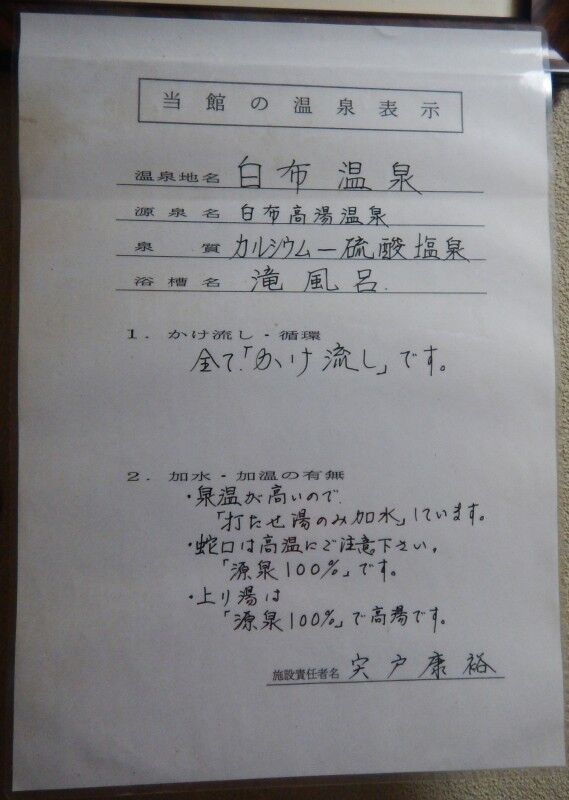 当館の温泉表示
温泉地名 白布温泉
源泉名 白布高湯温泉
泉質 カルシウム一硫酸塩泉
浴槽名 滝風呂.
1. かけ流し・循環
全て、「かけ流し」です。
2. 加水・加温の有無
・泉温が高いので、
「打たせ湯のみ加水」しています。
・蛇口は高温にご注意下さい。
「源泉100%」です。
・上り湯は
「源泉100%」で高湯です。
施設責任者名 宍戸康裕